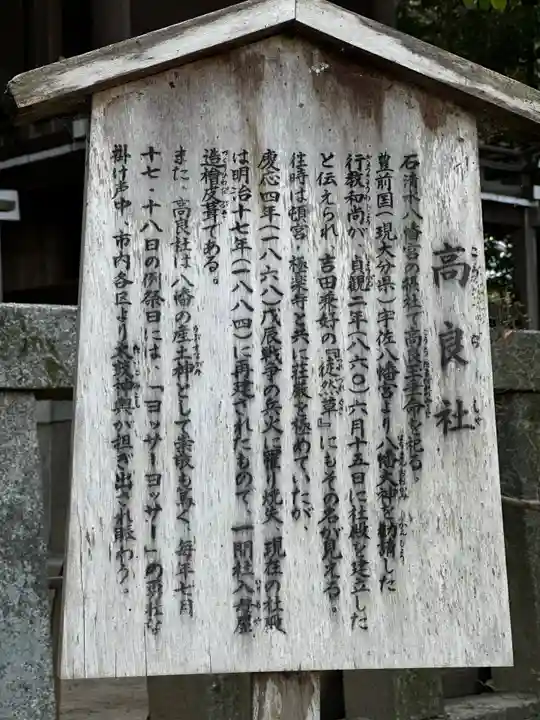 高良社
石清水八幡宮の摂社で高良玉垂命を祀る。
豊前国(現大分県)宇佐八幡宮より八幡大神を勧請した
行教和尚が、貞観二年(八六〇)六月十五日に社殿を建立した
と伝えられ、吉田兼好の『徒然草』にもその名が見える。
往時は頓宮・極楽寺と共に荘厳を極めていたが
慶応四年(一八六八)戊辰戦争の兵火に罹り焼失、現在の社殿
は明治十七年(一八八四)に再建されたもので、一間社八幡屋
造檜皮葺である。
また、高良社は八幡の産土神として崇敬も篤く、毎年七月
十七・十八日の例祭日には、「ヨッサーヨッサー」の勇壮な
掛け声中、市内各区より太鼓神輿が担ぎ出され賑わう。